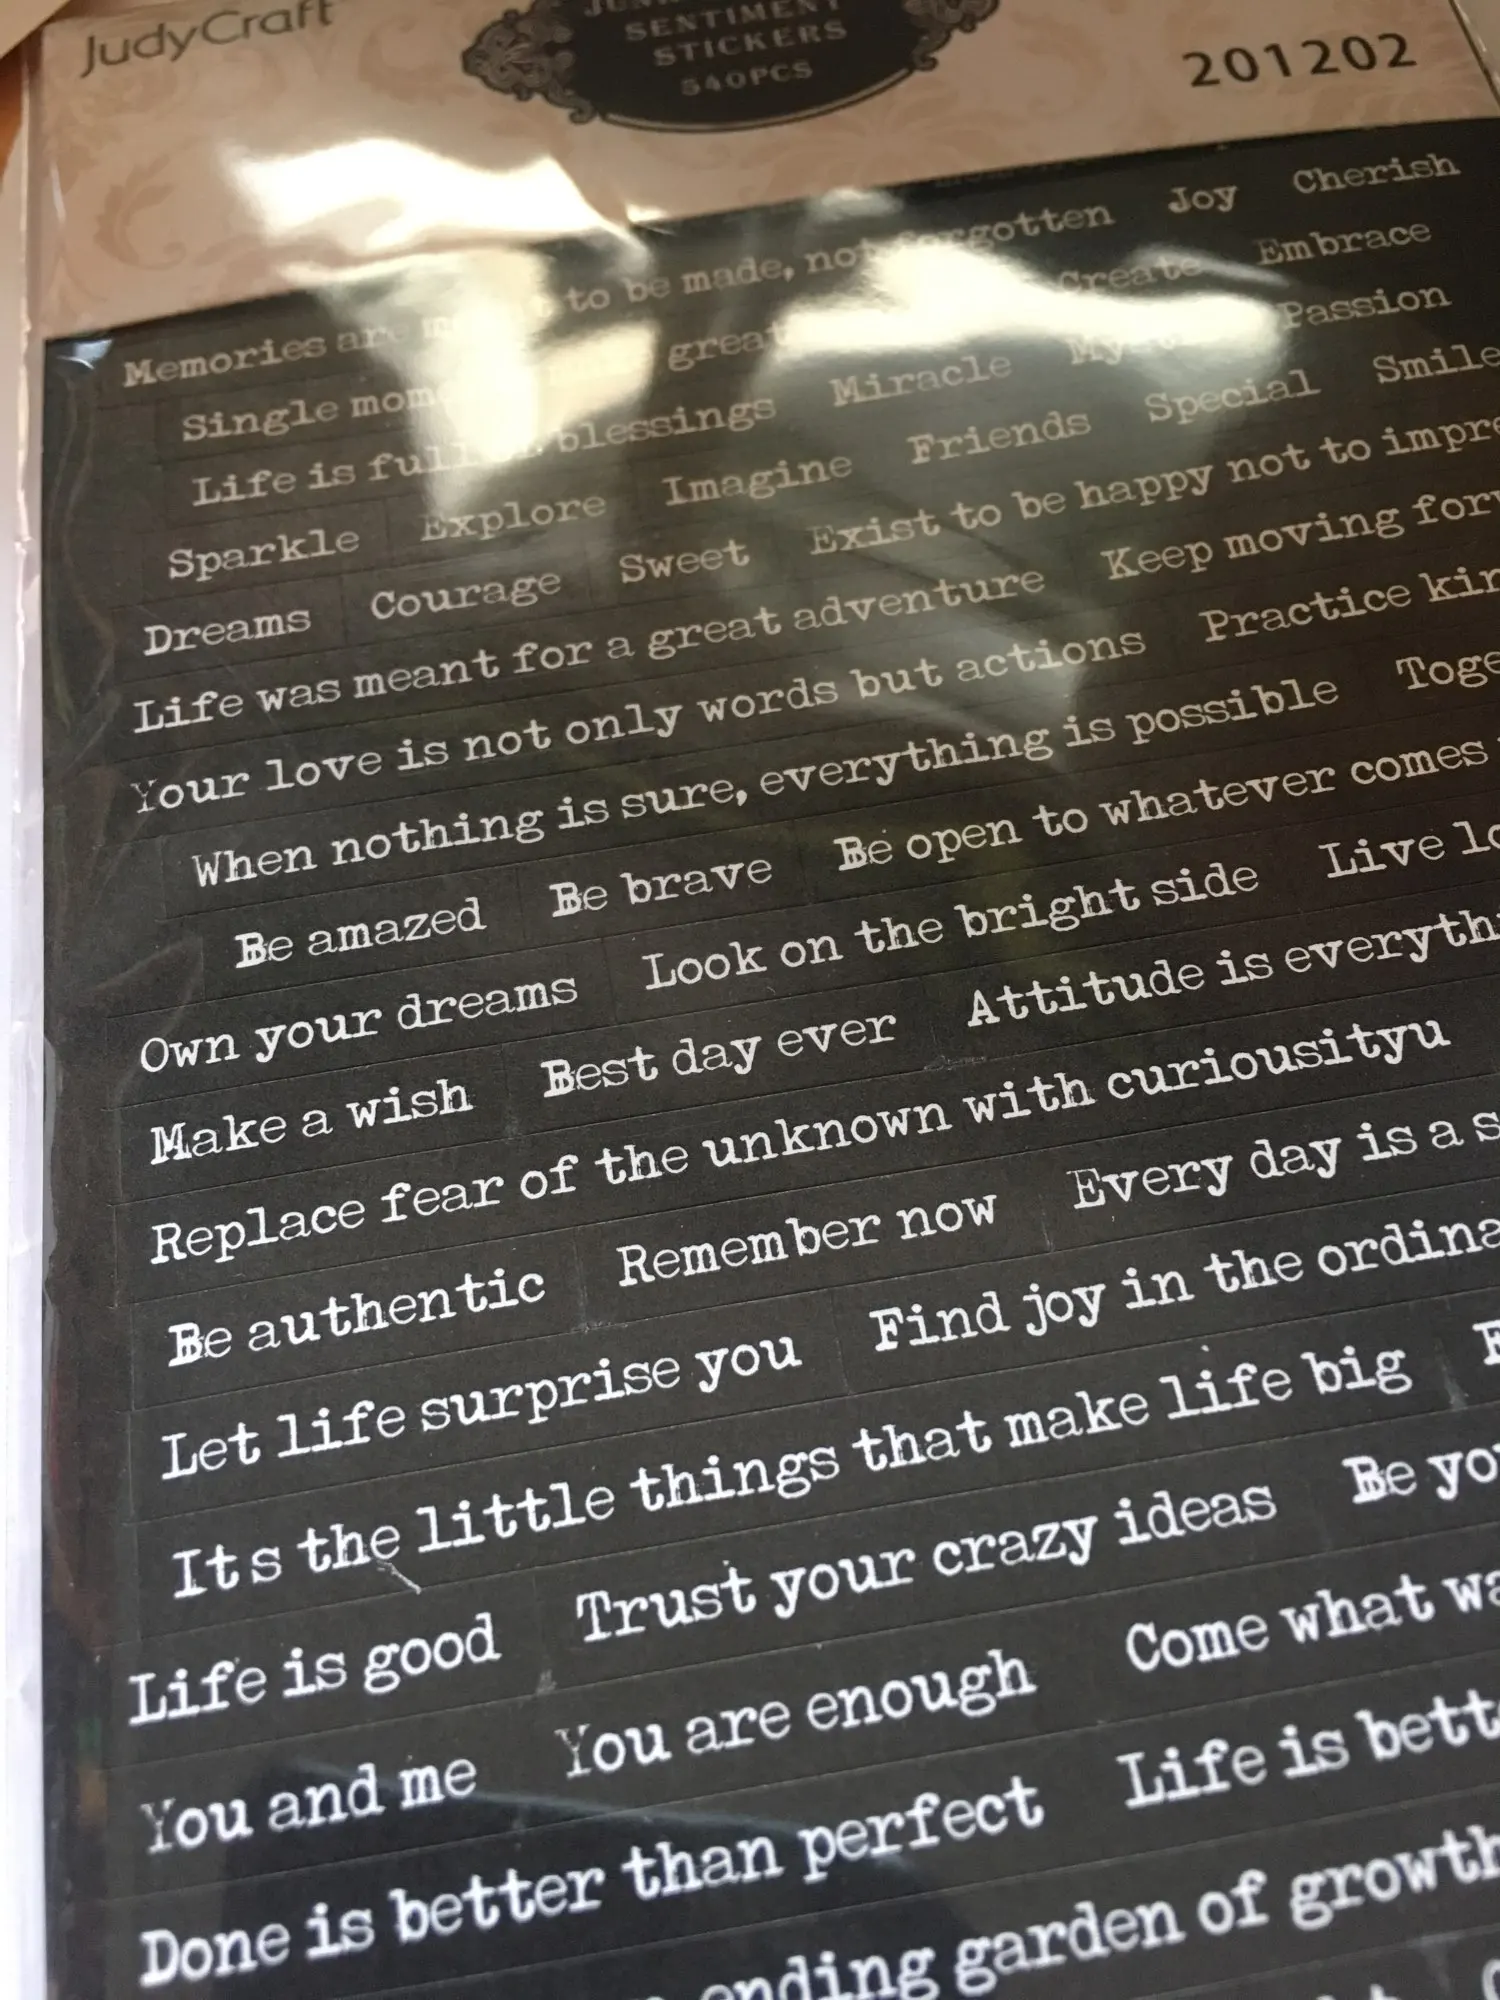 JudyCraft
SENTIMENT
STICKERS
540PCS
201202
Memories are to be made, not forgotten Joy Cherish
Single great Create Embrace
Life is blessings Miracle Passion
Sparkle Explore Imagine Friends Special Smile
Dreams Courage Sweet Exist to be happy not to impre
Life was meant for a great adventure Keep moving forw
Your love is not only words but actions Practice kin
When nothing is sure, everything is possible Toge
Be amazed Be brave Be open to whatever comes
Own your dreams Look on the bright side Live lo
Make a wish Best day ever Attitude is everythi
Replace fear of the unknown with curiousityu
Be authentic Remember now Every day is a s
Let life surprise you Find joy in the ordina
Its the little things that make life big
Life is good Trust your crazy ideas Be yo
You and me You are enough Come what wa
Done is better than perfect Life is bette
ending garden of growth